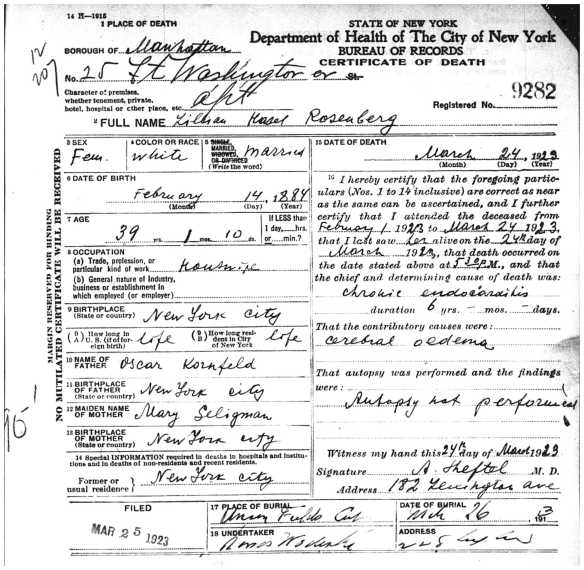 14 H-1915
1 PLACE OF DEATH
STATE OF NEW YORK
Department of Health of The City of New York
BUREAU OF RECORDS
CERTIFICATE OF DEATH
BOROUGH OF Manhattan
No. 25 Ft Washington av St.
Character of premises,
whether tenement, private,
hotel, hospital or other place, etc. apt
9282
Registered No.
2 FULL NAME Lillian Hasel Rosenberg
MARGIN RESERVED FOR BINDING
NO MUTILATED CERTIFICATE WILL BE RECEIVED
3 SEX
Fem.
4 COLOR OR RACE
White
5 SINGLE, MARRIED, WIDOWED, OR DIVORCED
(Write the word)
Married
6 DATE OF BIRTH
February 14, 1884
(Month) (Day) (Year)
7 AGE
39 yrs. 1 mos. 10 ds.
If LESS than
1 day,....hrs.
or....min.?
8 OCCUPATION
(a) Trade, profession, or
particular kind of work. Housewife
(b) General nature of industry,
business or establishment in
which employed (or employer)
9 BIRTHPLACE
(State or country) New York city
9 A How long in
U. S. (if of foreign birth) life
9 B How long resident in City
of New York life
10 NAME OF
FATHER Oscar Kornfeld
11 BIRTHPLACE
OF FATHER
(State or country) New York city
12 MAIDEN NAME
OF MOTHER Mary Seligman
13 BIRTHPLACE
OF MOTHER
(State or country) New York city
14 Special INFORMATION required in deaths in hospitals and institutions
and in deaths of non-residents and recent residents.
Former or
usual residence New York city
15 DATE OF DEATH
March 24, 1923
(Month) (Day) (Year)
16 I hereby certify that the foregoing particulars
(Nos. 1 to 14 inclusive) are correct as near
as the same can be ascertained, and I further
certify that I attended the deceased from
February 1 1923 to March 24 1923,
that I last saw her alive on the 24th day of
March 1923, that death occurred on
the date stated above at 5 30 P M., and that
the chief and determining cause of death was:
chronic endocarditis
duration 6 yrs. - mos. - days.
That the contributory causes were:
cerebral oedema
That autopsy was performed and the findings
were:
Autopsy not performed
Witness my hand this 24th day of March 1923
Signature A. Sheftel M. D.
Address 182 Lexington ave
FILED
MAR 25 1923
17 PLACE OF BURIAL
Union Fields Cem
DATE OF BURIAL
Mch 26 1913
18 UNDERTAKER
ADDRESS